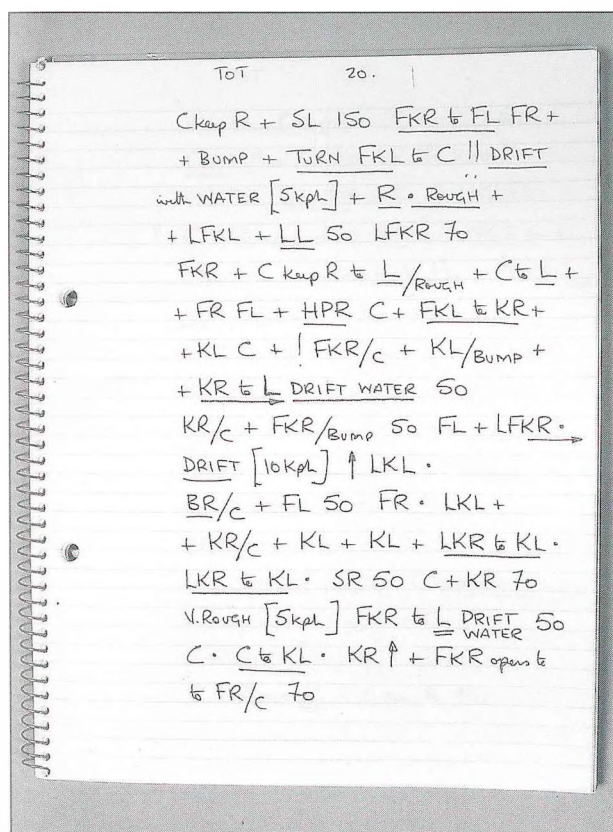 TOT 20.
C keep R + SL 150 FKR to FL FR +
+ BUMP + TURN FKL to C !! DRIFT
with WATER [5kph] + R • ROUGH +
+ LFKL + LL 50 LFKR 70
FKR + C keep R to L/ROUGH + C to L +
+ FR FL + HPR C + FKL to KR +
+ KL C + ! FKR/C + KL/BUMP +
+ KR to L DRIFT WATER 50
KR/C + FKR/BUMP 50 FL + LFKR •
DRIFT [10kph] ↑ LKL •
BR/C + FL 50 FR • LKL +
+ KR/C + KL + KL + LKR to KL •
LKR to KL • SR 50 C + KR 70
V.ROUGH [5kph] FKR to L DRIFT WATER 50
C • C to KL • KR ↑ + FKR opens to
to FR/C 70